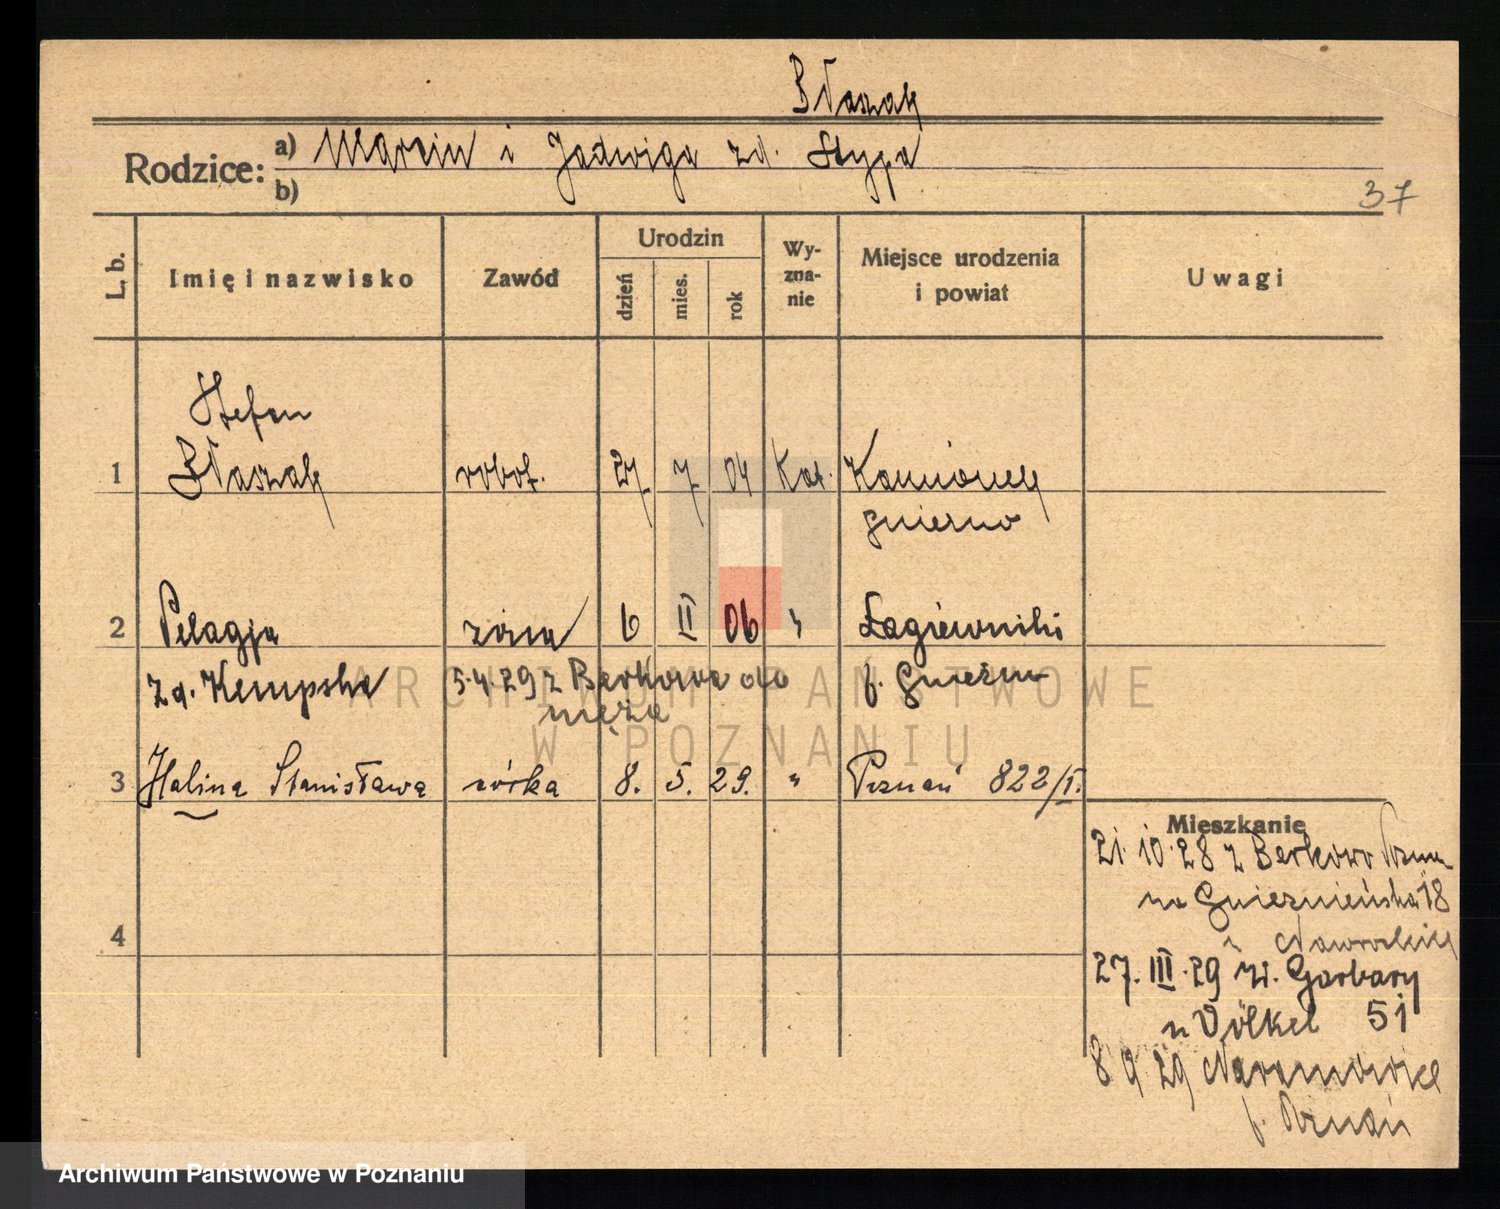 Błaszak
Rodzice: a) Marcin i Jadwiga zd. Stypa
b)
37
L. b. Imię i nazwisko Zawód Urodzin dzień mies. rok Wy-zna-nie Miejsce urodzenia i powiat Uwagi
Stefan
1 Błaszak robot. 27 7 04 Kat. Kamionek
Gniezno
2 Pelagja żona 6 II 06 " Łagiewniki
zd. Kempska 5.4.29 z Berkowa do p. Gniezno
męża
3 Halina Stanisława córka 8. 5. 29. " Poznań 822/I.
Mieszkanie
21.10.28 z Berkowo
na Gnieźnieńska 18
4
27.III.29 Garbary
u Völkel 51
8 9 29 Naramowice
p. Poznań
ARCHIWUM PAŃSTWOWE
W POZNANIU
Archiwum Państwowe w Poznaniu